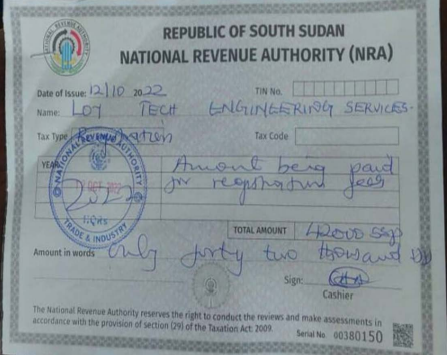 REPUBLIC OF SOUTH SUDAN
NATIONAL REVENUE AUTHORITY (NRA)
Date of Issue: 12/10 2022 TIN No.
Name: LOY TECH ENGINEERING SERVICES.
Tax Type Registration Tax Code
YEAR Amount being paid
for registration fees
2022
NATIONAL REVENUE AUTHORITY
HQRs
TRADE & INDUSTRY
TOTAL AMOUNT 42000 SSP
Amount in words Only forty two thousand SSP
Sign:
Cashier
The National Revenue Authority reserves the right to conduct the reviews and make assessments in
accordance with the provision of section (29) of the Taxation Act: 2009.
Serial No 00380150